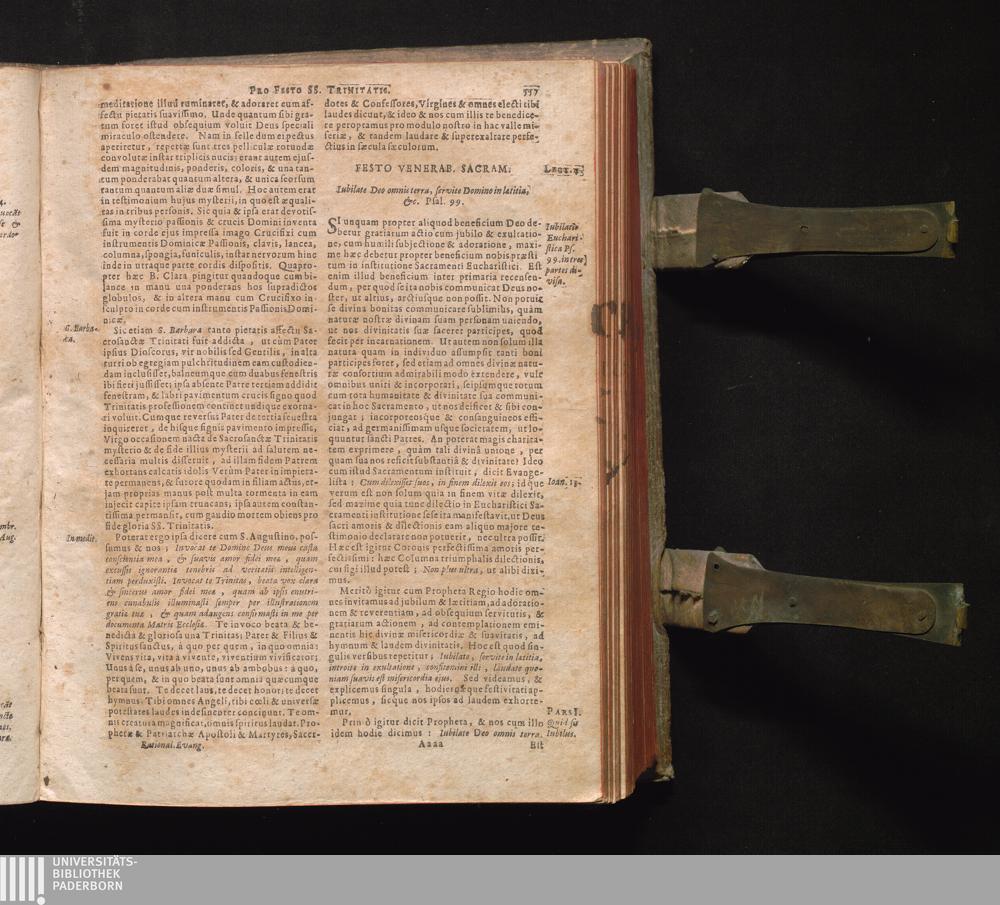 PRO FESTO SS. TRINITATIS.
557
meditatione illud ruminaret, & adoraret eum af-
fectu pietatis suavissimo. Unde quantum sibi gra-
tum foret istud obsequium voluit Deus speciali
miraculo ostendere. Nam in felle dum ei pectus
aperiretur, repertæ sunt tres pellículæ rotundæ
convolutæ instar triplicis nucis; erant autem ejus-
dem magnitudinis, ponderis, coloris, & una tan-
tum ponderabat quantum altera, & unica seorsum
tantum quantum aliæ duæ simul. Hoc autem erat
in testimonium hujus mysterii, in quo est æquali-
tas in tribus personis. Sic quia & ipsa erat devotis-
sima mysterio passionis & crucis Domini inventa
fuit in corde ejus impressa imago Crucifixi cum
instrumentis Dominicæ Passionis, clavis, lancea,
columna, spongia, funiculis, instar nervorum hinc
inde in utraque parte cordis dispositis. Quapro-
pter hæc B. Clara pingitur quandoque cum bi-
lance in manu una ponderans hos supradictos
globulos, & in altera manu cum Crucifixo in-
sculpto in corde cum instrumentis Passionis Domi-
nicæ.
Sic etiam S. Barbara tanto pietatis affectu Sa-
crosanctæ Trinitati fuit addicta, ut cum Pater
ipsius Dioscorus, vir nobilis sed Gentilis, in alta
turri ob egregiam pulchritudinem eam custodien-
dam inclusisset, balneumque cum duabus fenestris
ibi fieri jussisset; ipsa absente Patre tertiam addidit
fenestram, & labri pavimentum crucis signo quod
Trinitatis professionem continet undique exorna-
ri voluit. Cumque reversus Pater de tertia fenestra
inquireret, de hisque signis pavimento impressis,
Virgo occasionem nacta de Sacrosanctæ Trinitatis
mysterio & de fide illius mysterii ad salutem ne-
cessaria multis disseruit, ad illam fidem Patrem
exhortans calcatis idolis Verùm Pater in impieta-
te permanens, & furore quodam in filiam actus, et-
jam proprias manus post multa tormenta in eam
injecit capite ipsam truncans; ipsa autem constan-
tissima permansit, cum gaudio mortem obiens pro
fide gloria SS. Trinitatis.
Poterat ergo ipsa dicere cum S. Augustino, pos-
sumus & nos; Invocat te Domine Deus meus casta
conscientia mea, & suavis amor fidei mea, quam
excussis ignorantiæ tenebris ad veritatis intelligen-
tiam perduxisti. Invocat te Trinitas, beata vox clara
& sincerus amor fidei mea, quam ab ipsis enutri-
ens cunabulis illuminasti semper per illustrationem
gratiæ tuæ, & quam adaugens confirmasti in me per
documenta Matris Ecclesiæ. Te invoco beata & be-
nedicta & gloriosa una Trinitas; Pater & Filius &
Spiritus sanctus, à quo per quem, in quo omnia:
Vivens vita, vita à vivente, viventium vivificator:
Unus à se, unus ab uno, unus ab ambobus: à quo,
per quem, & in quo beata sunt omnia quæcumque
beata sunt. Te decet laus, te decet honor: te decet
hymnus. Tibi omnes Angeli, tibi cœli & universæ
potestates laudes indesinenter concinunt. Te om-
nis creatura magnificat, omnis spiritus laudat. Pro-
phetæ & Patriarchæ Apostoli & Martyres, Sacer-
Rational. Evang.
S. Barba-
ra.
In medit.
dotes & Confessores, Virgines & omnes electi tibi
laudes dicunt, & ideo & nos cum illis te benedice-
re peroptamus pro modulo nostro in hac valle mi-
seriæ, & tandem laudare & superexaltare perfe-
ctius in sæcula sæculorum.
FESTO VENERAB. SACRAM.
Iubilate Deo omnis terra, servite Domino in lætitia,
&c. Psal. 99.
SI unquam propter aliquod beneficium Deo de-
betur gratiarum actio cum jubilo & exultatio-
ne, cum humili subjectione & adoratione, maxi-
me hæc debetur propter beneficium nobis præsti
tum in institutione Sacramenti Eucharistici. Est
enim illud beneficium inter primaria recensen-
dum, per quod se ita nobis communicat Deus no-
ster, ut altius, arctiusque non possit. Non potuit
se divina bonitas communicare sublimius, quàm
naturæ nostræ divinam suam personam uniendo,
ut nos divinitatis suæ faceret participes, quod
fecit per incarnationem. Ut autem non solum illa
natura quam in individuo assumpsit tanti boni
particeps foret, sed etiam ad omnes divinæ natu-
ræ consortium admirabili modo extendere, vult
omnibus uniri & incorporari, seipsumque totum
cum tota humanitate & divinitate sua communi-
cat in hoc Sacramento, ut nos deificet & sibi con-
jungat; incorporeosque & consanguineos effi-
ciat, ad germanissimam usque societatem, ut lo-
quuntur sancti Patres. An poterat magis charita-
tem exprimere, quàm tali divinâ unione, per
quam sua nos reficit substantiâ & divinitate? Ideo
cum istud Sacramentum instituit, dicit Evange-
lista: Cum dilexisset suos, in finem dilexit eos; id que
verum est non solum quia in finem vitæ dilexit,
sed maxime quia tunc dilectio in Eucharistici Sa-
cramenti institutione sese ita manifestavit, ut Deus
sacri amoris & dilectionis eam aliquo majore te-
stimonio declarare non potuerit, nec ultra possit.
Hæc est igitur Coronis perfectissima amoris per-
fectissimi: hæc Columna triumphalis dilectionis,
cui sigi illud potest; Non plus ultra, ut alibi dixi-
mus.
Meritò igitur cum Propheta Regio hodie om-
nes invitamus ad jubilum & lætitiam, ad adoratio-
nem & reverentiam, ad obsequium servitutis, &
gratiarum actionem, ad contemplationem emi-
nentis hic divinæ misericordiæ & suavitatis, ad
hymnum & laudem divinitatis. Hoc est quod sin-
gulis versibus repetitur; Iubilate, servite in lætitia,
introite in exultatione, confitemini illi, laudate quo-
niam suavis est misericordia ejus. Sed videamus, &
explicemus singula, hodieque festivitati ap-
plicemus, sicque nos ipsos ad laudem exhorte-
mur.
Primò igitur dicit Propheta, & nos cum illo
idem hodie dicimus: Iubilate Deo omnis terra.
Aaaa
Est
Lect. 1.
Iubilatio
Euchari-
stica Ps.
99. in tres
partes di-
visa.
Ioan. 13.
PARS I.
Quid sit
Iubilus.
UNIVERSITÄTS-
BIBLIOTHEK
PADERBORN